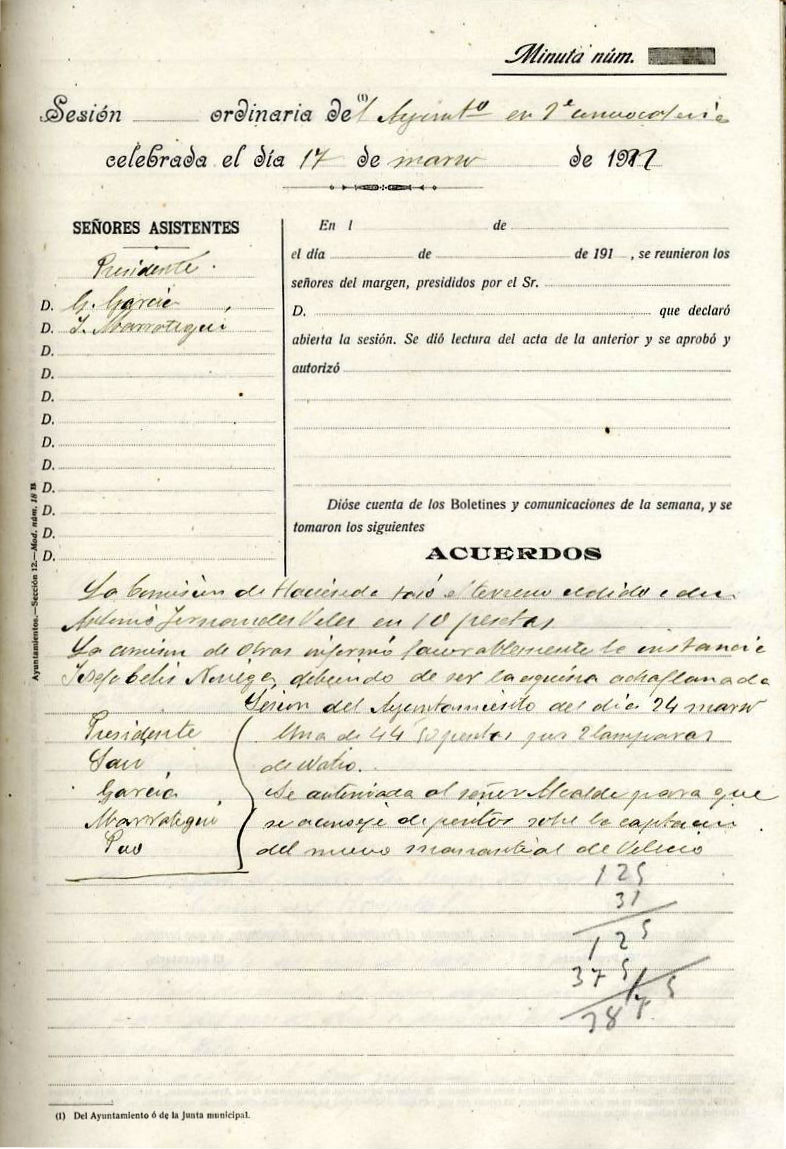 Minuta núm.
Sesión ordinaria de (1) l Ayuntº en 2ª convocatoria
celebrada el día 17 de marzo de 19
SEÑORES ASISTENTES
Presidente.
D. G. García
D. J. Marrategui
D.
D.
D.
D.
D.
D.
D.
D.
D.
D.
En 1 de
el día de de 191 , se reunieron los
señores del margen, presididos por el Sr.
D. que declaró
abierta la sesión. Se dió lectura del acta de la anterior y se aprobó y
autorizó
Dióse cuenta de los Boletines y comunicaciones de la semana, y se
tomaron los siguientes
ACUERDOS
La Comisión de Hacienda tasó el terreno cedido a don
Antonio Fernandez Velez en 10 pesetas
La comision de Obras informó favorablemente la instancia
debiendo de ser la esquina achaflanada
Sesion del Ayuntamiento del día 24 marzo
Presidente
San
García
Marrategui
Una de 44 50 pesetas por 2 lamparas
de Watio.
Se autoriza al señor Alcalde para que
se aconseje de peritos sobre la captacion
del nuevo manantial de
125
31
125
375
Ayuntamientos.—Sección 12.—Mod. núm. 18 B
(1) Del Ayuntamiento ó de la Junta municipal.